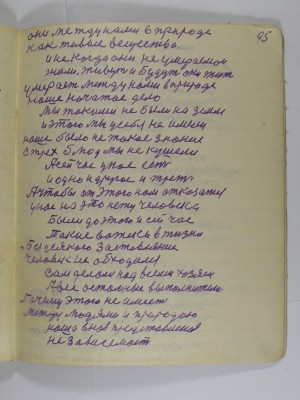 95
они между нами в природе
как живые вещества.
и не когда они не умераем
знали. живут и будут они жит
умерает между нами в природе
наше начатае дело
Мы такими не были на земли
и этого мы у себя не имеи
наше было не такое знание
Страх блюдо мы не кушали
А сейчас у нас есть
и одно и другое и трети
А чтобы от этого нам отказатя
у нас на это нету человека
Были до этого и сей час
Такие вот в жизни
без всякого Заставление
Человек не обходим
Сам делом над всеми хозяен
А все остольные выполнитель
Почему этого не имеет
между людями и природою
наша внов представления
не зависемост